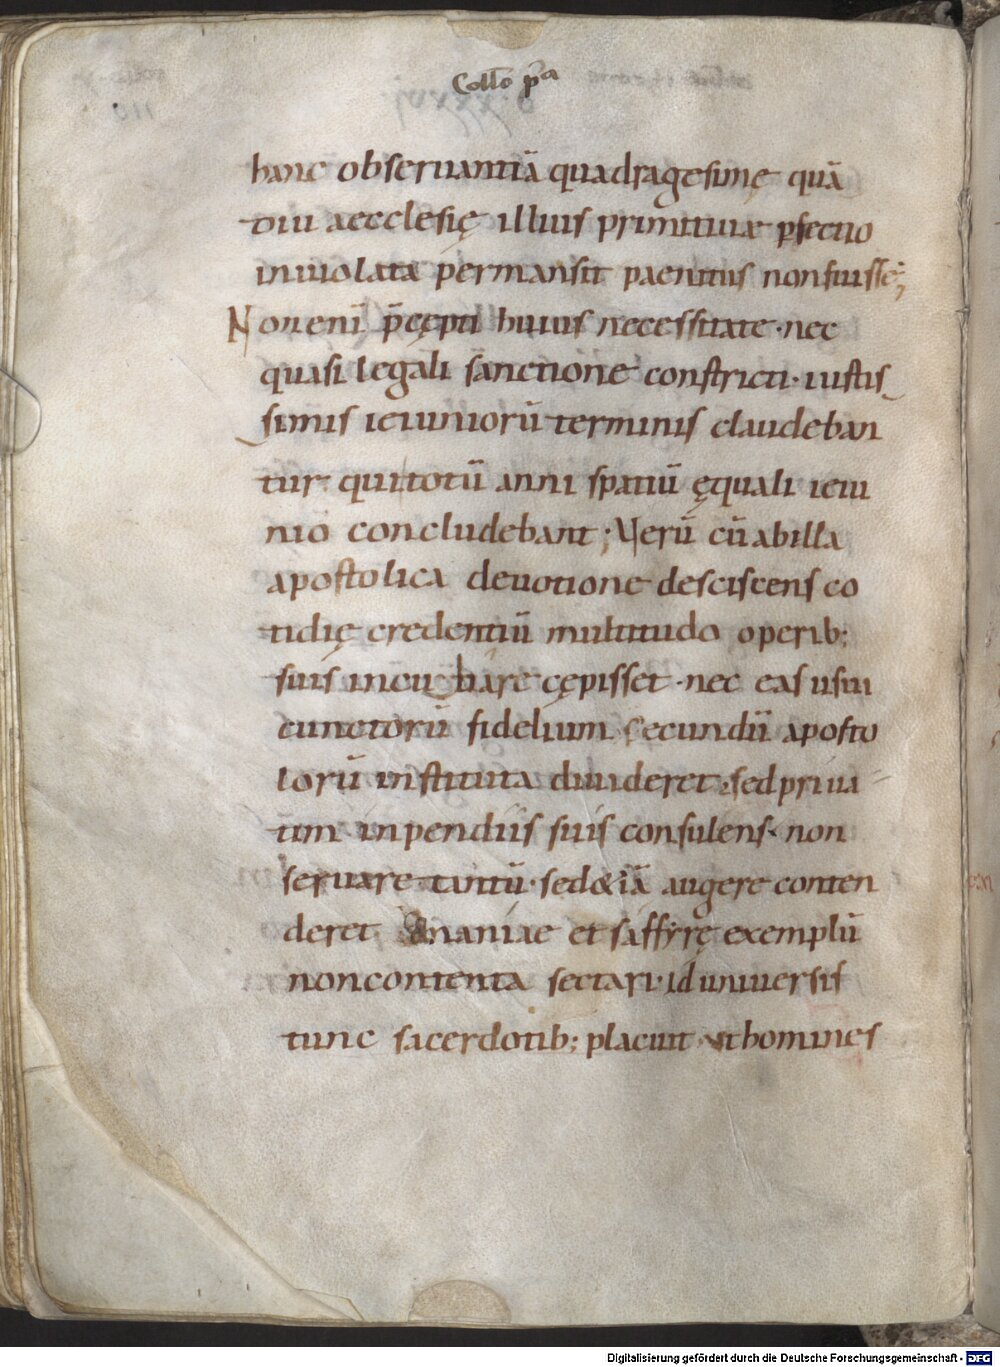 Collo pᵃ
hanc obseruantiā quadragesimę quā
diu aecclesię illius primitiuæ pfectio
inuiolata permansit paenitus nonfuisse;
Noneni p̄cępti huius necessitate· nec
quasi legali sanctione constricti· iustis
simis ieiuniorū terminis claudeban
tur· qui totū anni spatiū ęquali ieiu
nio concludebant; Verū cū abilla
apostolica deuotione desciscens co
tidię credentiū multitudo operib;
suis incubare cępisset· nec eas usui
cunctorū fidelium secundū aposto
lorū instituta diuideret· sed priua
tim inpendiis suis consulens· non
seruare tantū· sed&iā augere conten
deret Ananiae et saffyrę exemplū
noncontenta sectari· id uniuersis
tunc sacerdotib; placuit· vthomines
Digitalisierung gefördert durch die Deutsche Forschungsgemeinschaft - DFG